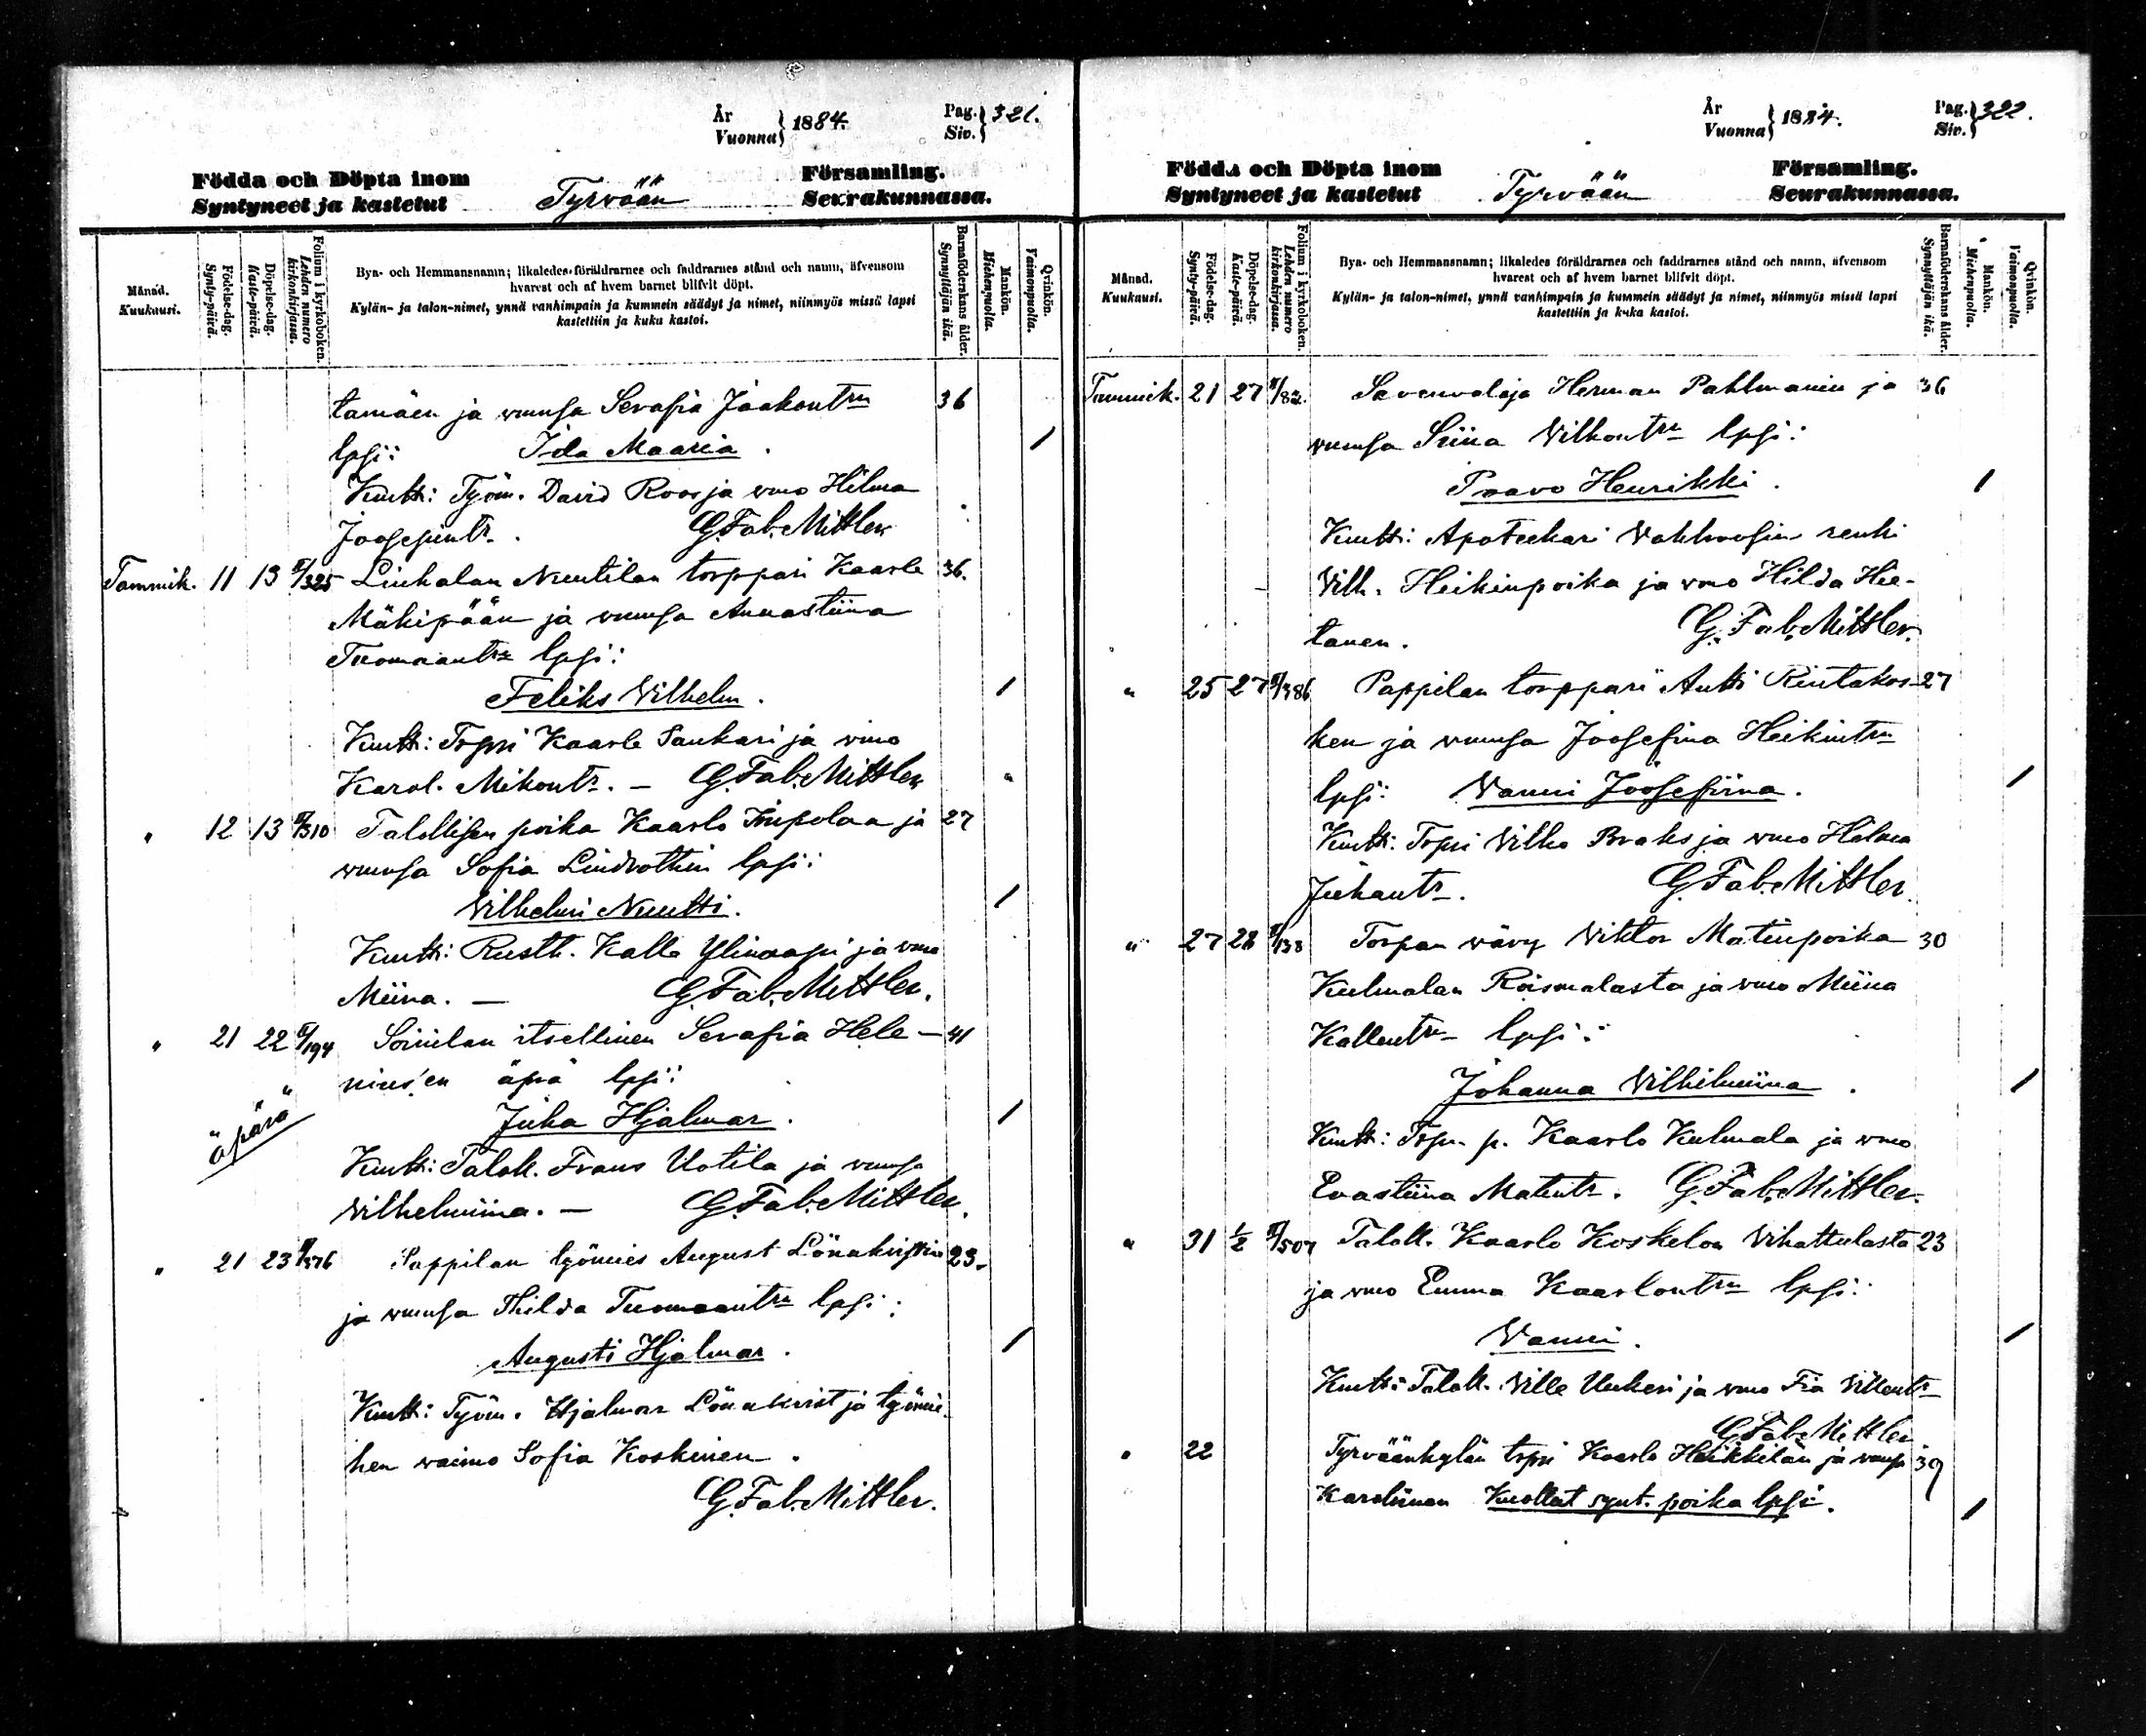 År
Vuonna } 1884.
Pag.
Siv. } 321.
Födda och Döpta inom
Syntyneet ja kastetut
Tyrvään
Församling.
Seurakunnassa.
Månad.
Kuukausi.
Födelse-dag.
Synty-päivä.
Döpelse-dag.
Kaste-päivä.
Folium i kyrkoboken.
Lehden numero
kirkonkirjassa.
Bya- och Hemmansnamn; likaledes föräldrarnes och faddrarnes stånd och namn, äfvensom
hvarest och af hvem barnet blifvit döpt.
Kylän- ja talon-nimet, ynnä vanhimpain ja kummein säädyt ja nimet, niinmyös missä lapsi
kastettiin ja kuka kastoi.
Barnaföderskans ålder.
Synnyttäjän ikä.
Mankön.
Miehenpuolia.
Qvinkön.
Vaimonpuolia.
tamäen ja vmnsa Serafia Jaakontrn 36
lpsi: Ida Maaria. /
Kmtt: Työm. David Roos ja vmo Hilma
Joosepintr. G. Fab. Mittler
Tammik. 11 13 /325 Liuhalan Nuutilan torppari Kaarle 36.
Mäkipään ja vmnsa Annastiina
Tuomaantrn lpsi:
Feliks Vilhelm. /
Kmtt: Torpri Kaarle Saukari ja vmo
Karol. Mikontr. — G. Fab. Mittler
" 12 13 /310 Talollisen poika Kaarlo Knipolaa ja 27
vmnsa Sofia Lindrothin lpsi:
Vilhelmi Nuutti. /
Kmtt: Rusth. Kalle ja vmo
Miina. — G. Fab. Mittler.
" 21 22 /194 Soinilan itsellinen Serafia Hele- 41
nius'en äprä lpsi:
äpärä
Juha Hjalmar. /
Kmtt: Taloll. Frans Uotila ja vmnsa
Vilhelmiina. — G. Fab. Mittler.
" 21 23 /576 Pappilan työmies August Lönnkvistin 23.
ja vmnsa Thilda Tuomaantrn lpsi:
Augusti Hjalmar. /
Kmtt: Työm. Hjalmar Lönnkvist ja työmie-
hen vaimo Sofia Koskinen.
G. Fab. Mittler.
År
Vuonna } 1884.
Pag.
Siv. } 322.
Födda och Döpta inom
Syntyneet ja kastetut
Tyrvään
Församling.
Seurakunnassa.
Månad.
Kuukausi.
Födelse-dag.
Synty-päivä.
Döpelse-dag.
Kaste-päivä.
Folium i kyrkoboken.
Lehden numero
kirkonkirjassa.
Bya- och Hemmansnamn; likaledes föräldrarnes och faddrarnes stånd och namn, äfvensom
hvarest och af hvem barnet blifvit döpt.
Kylän- ja talon-nimet, ynnä vanhimpain ja kummein säädyt ja nimet, niinmyös missä lapsi
kastettiin ja kuka kastoi.
Barnaföderskans ålder.
Synnyttäjän ikä.
Mankön.
Miehenpuolia.
Qvinkön.
Vaimonpuolia.
Tammik. 21 27 /82. Savenvalaja Herman Pahlmanin ja 36
vmnsa Siina Vilhontrn lpsi:
Paavo Henrikki. /
Kmtt: Apoteekari renki
Vilh. Heikinpoika ja vmo Hilda Hie-
tanen. G. Fab. Mittler.
" 25 27 /386 Pappilan torppari Antti Rintakos- 27
ken ja vmnsa Joosefina Heikintrn
lpsi: Vanni Joosefiina. /
Kmtt: Torpri Vilho Braks ja vmo Hilma
Juhantr. G. Fab. Mittler.
" 27 28 /138 Torpan vävy Viktor Matinpoika 30
Kulmalan Roismalasta ja vmo Miina
Kallentrn lpsi:
Johanna Vilhelmiina. /
Kmtt: Torp. p. Kaarlo Kulmala ja vmo
Evastiina Matintr. G. Fab. Mittler.
" 31 1/2 /507 Taloll. Kaarlo Koskelon Vihattulasta 23
ja vmo Emma Kaarlontrn lpsi:
Vanni. /
Kmtt: Taloll. Ville Unkeri ja vmo Fia Villentr
G. Fab. Mittler
" 22 Tyrväänkylän torpri Kaarlo Heikkilän ja vmnsa 39
Karoliinan Kuollut synt. poika lpsi. /